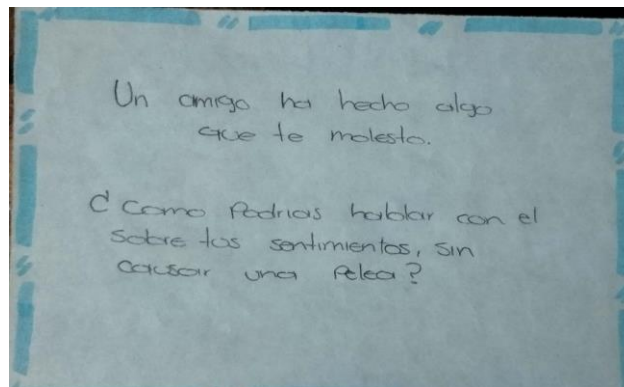 Un amigo ha hecho algo
que te molesto.
¿ Como Podrias hablar con el
sobre tus sentimientos, sin
causar una Pelea?